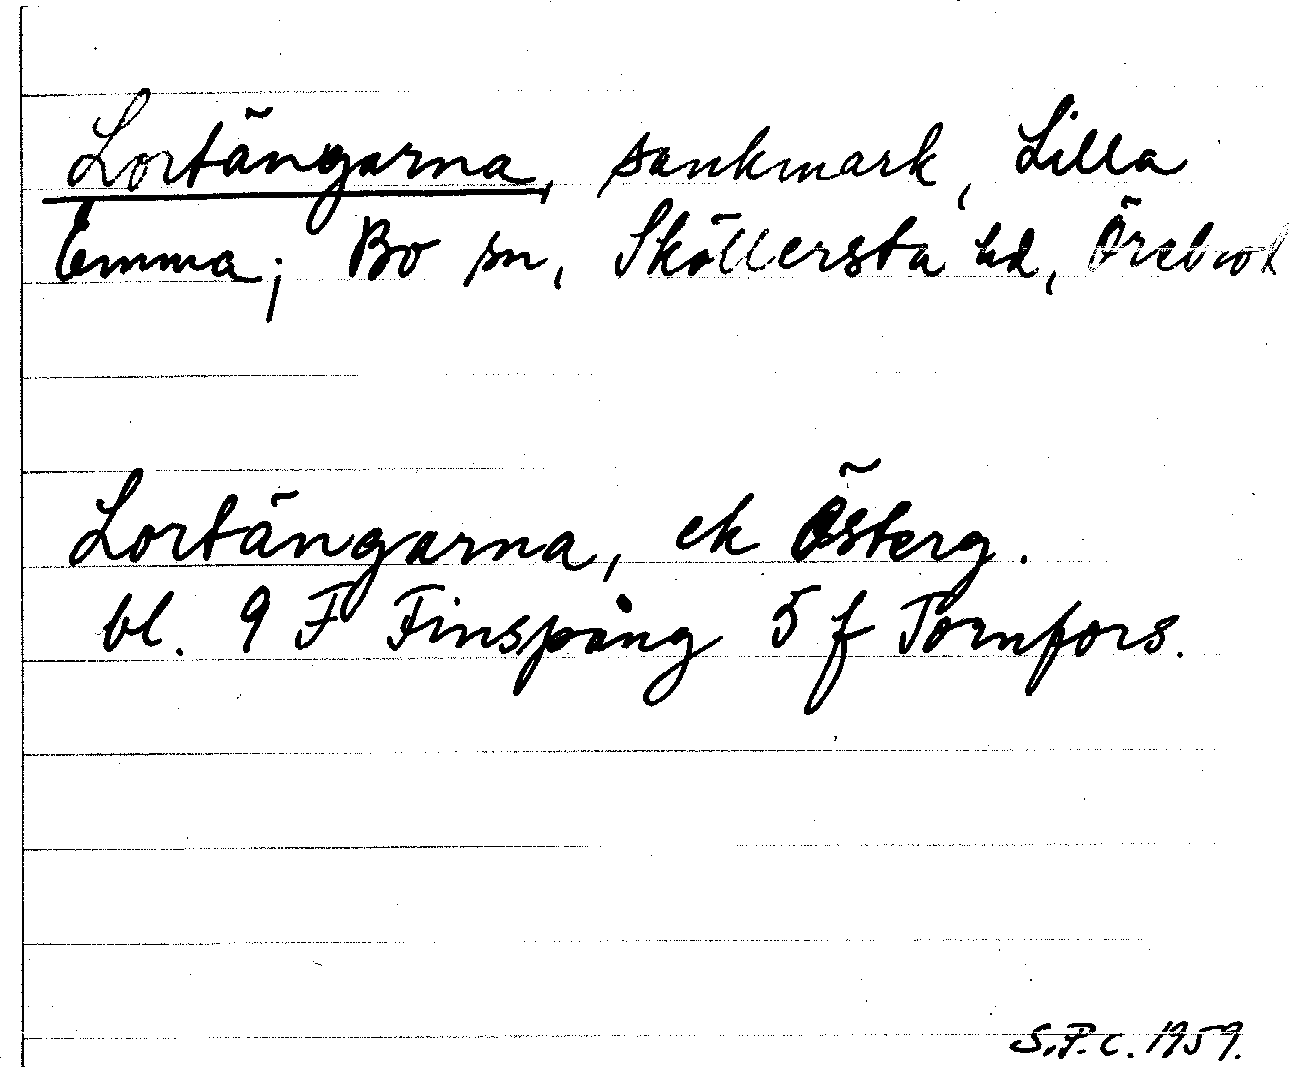 Lortängarna, sankmark, Lilla
Emma; Bo sn, Sköllersta hd, Örebro l
Lortängarna, ek Österg.
bl. 9 F Finspång 5 f Tornfors.
S.P.c. 1959.